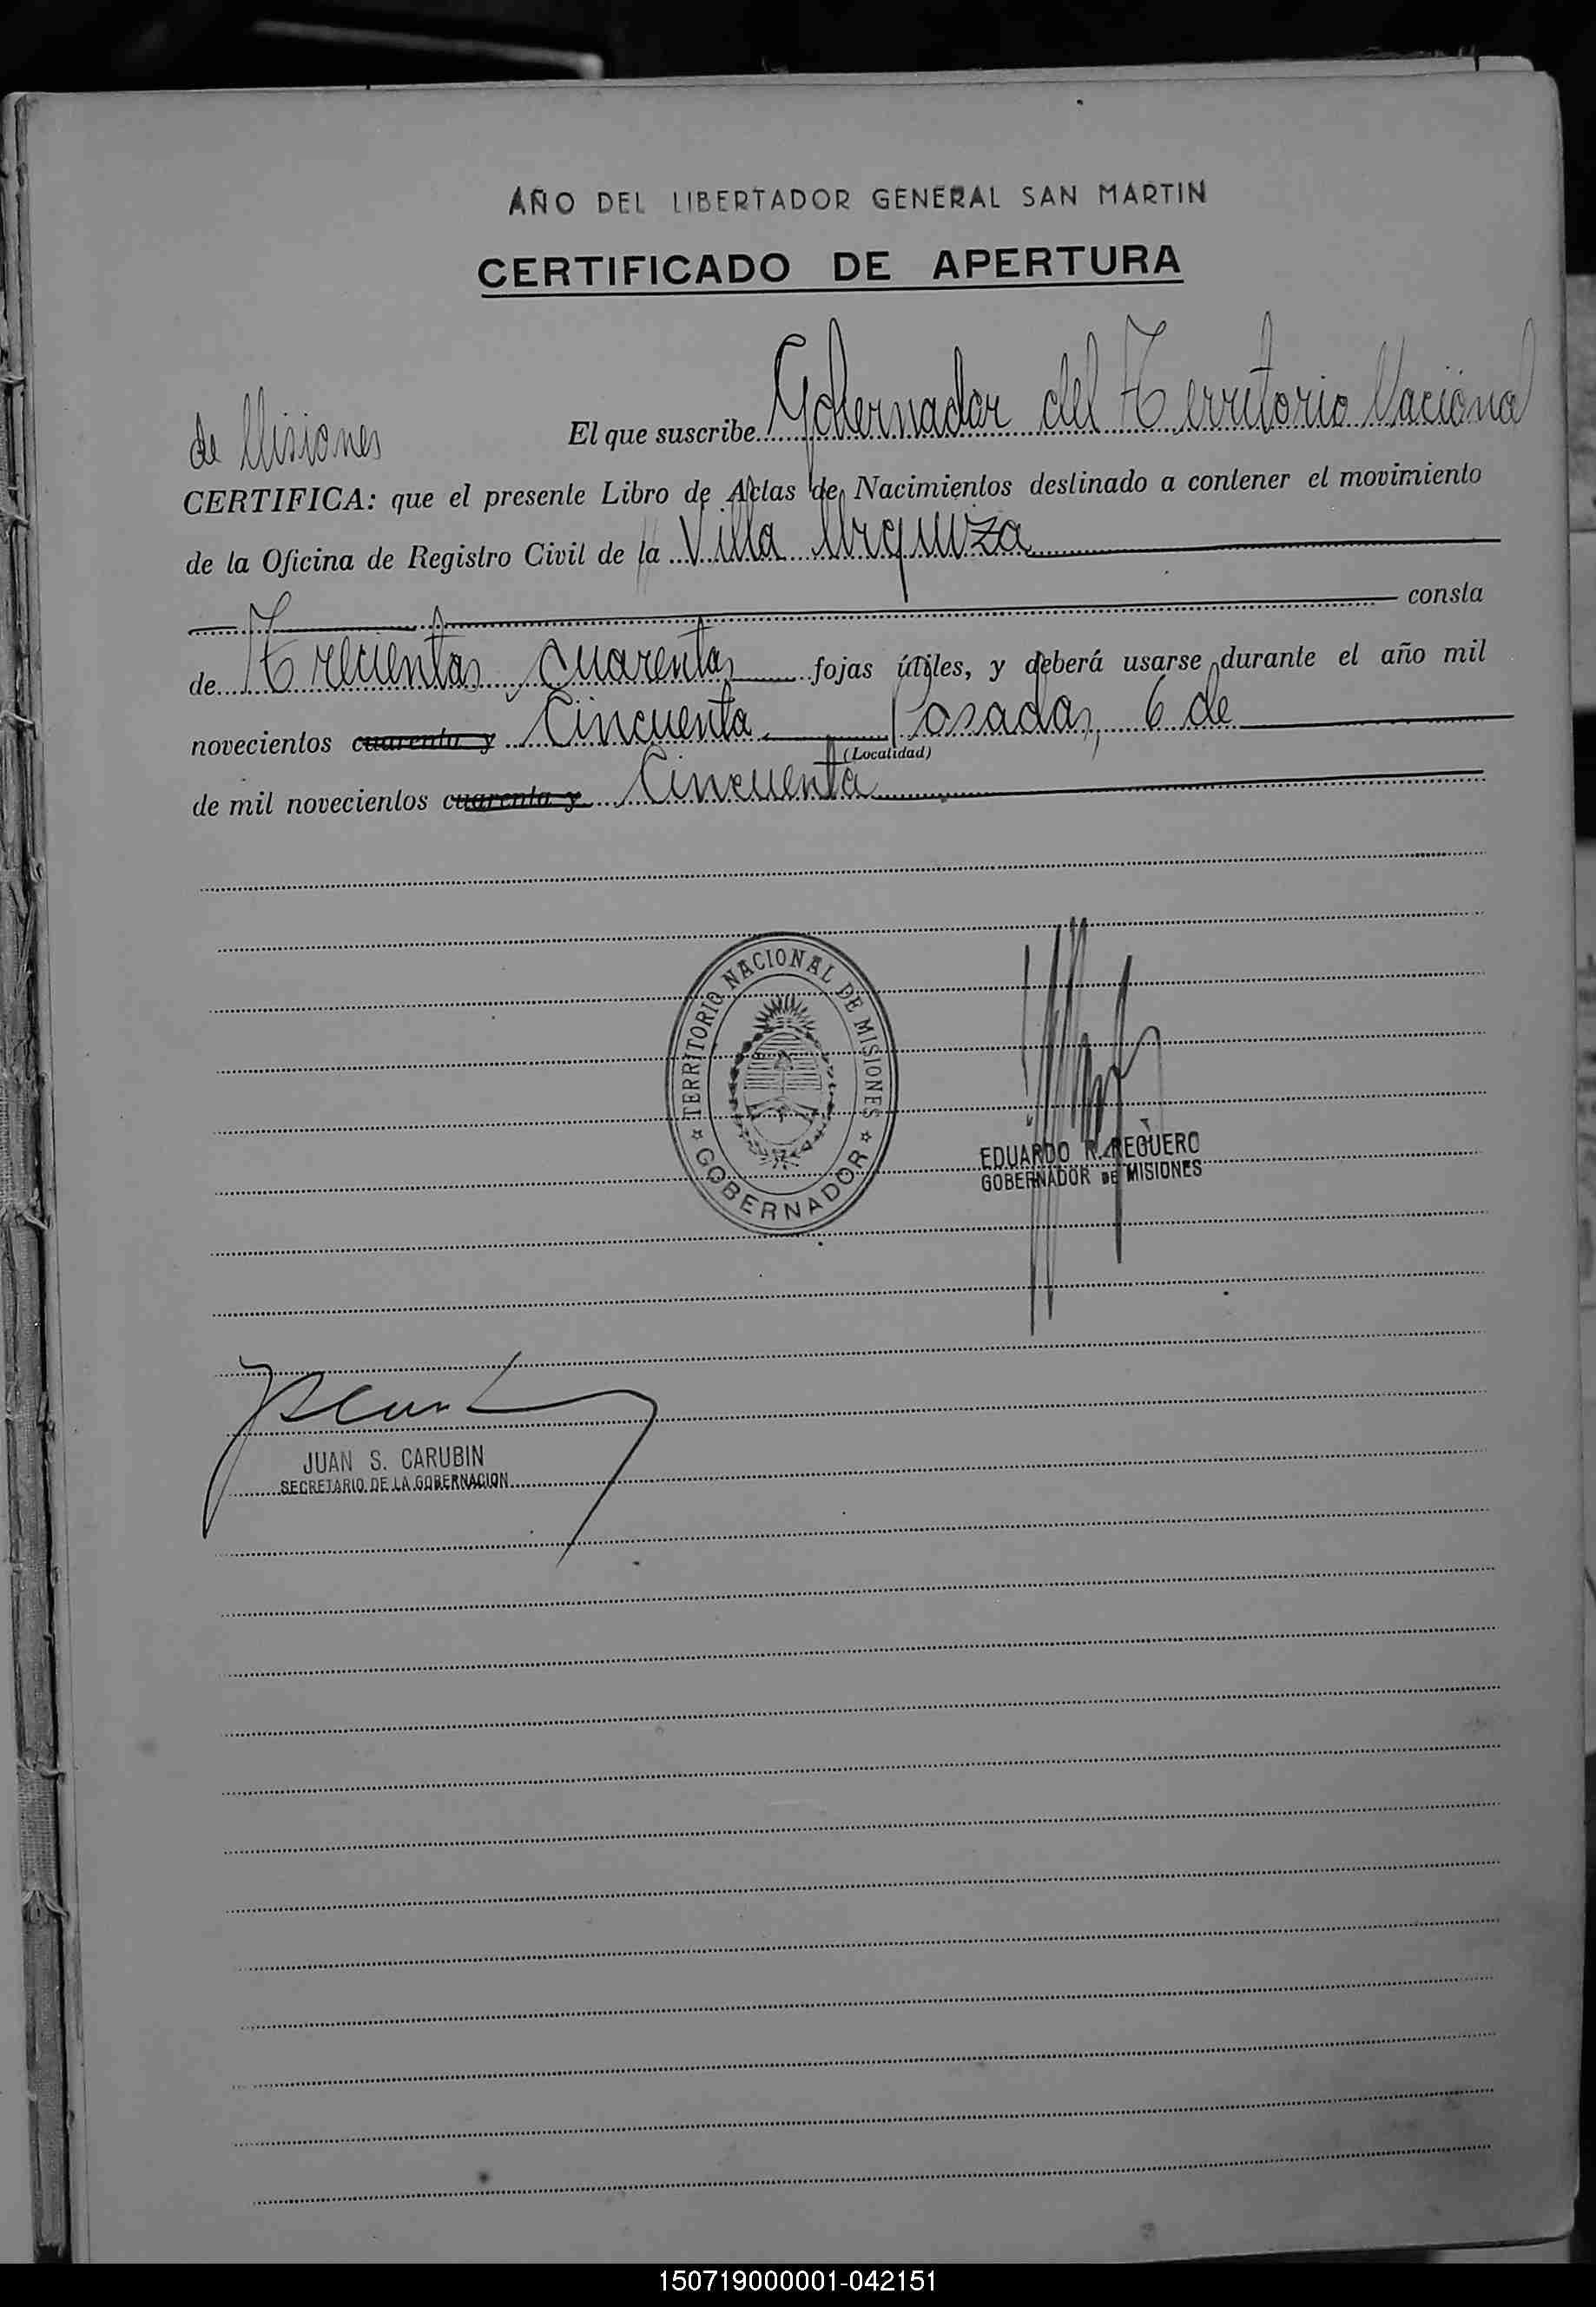 AÑO DEL LIBERTADOR GENERAL SAN MARTIN
CERTIFICADO DE APERTURA
El que suscribe Gobernador del Territorio Nacional
de Misiones
CERTIFICA: que el presente Libro de Actas de Nacimientos destinado a contener el movimiento
de la Oficina de Registro Civil de la Villa Urquiza
consta
de Trecientas cuarenta fojas útiles, y deberá usarse durante el año mil
novecientos cuarenta y Cincuenta. Posadas, 6 de
(Localidad)
de mil novecientos cuarenta y Cincuenta
TERRITORIO NACIONAL DE MISIONES
GOBERNADOR
EDUARDO R. REGUERO
GOBERNADOR DE MISIONES
JUAN S. CARUBIN
SECRETARIO DE LA GOBERNACION
150719000001-042151